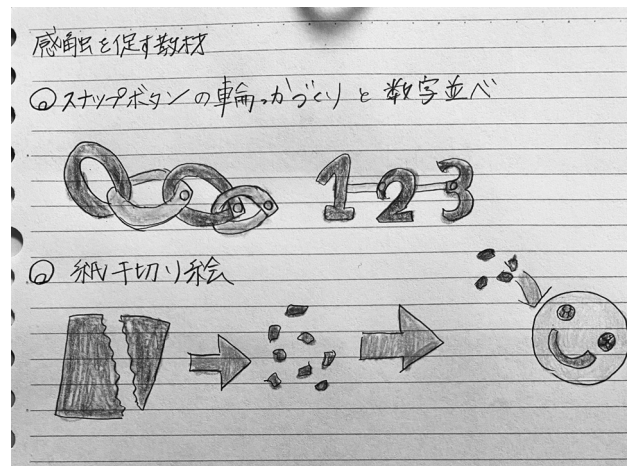 感触を促す教材
スナップボタンの輪っかづくりと数字並べ
1 2 3
紙千切り絵